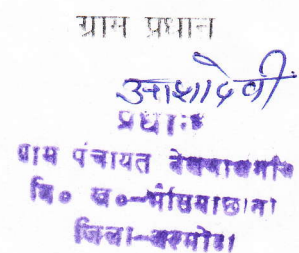 ग्राम प्रधान
आशादेवी
प्रधान
ग्राम पंचायत
वि० ख०-भैंसियाछाना
जिला-अल्मोड़ा